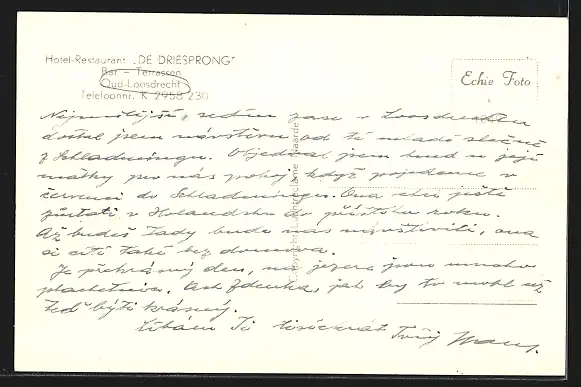 Hotel-Restaurant „DE DRIESPRONG"
Bar – Terrassen
Oud-Loosdrecht
Telefoonnr. K 2958-230
Echte Foto
Nejmilejší, sedím zase v Loosdrechtu
dostal jsem návštěvu od té mladé slečně
z Schladmingu. Objednal jsem hned u její
matky pro nás pokoj když pojedeme v
červenci do Schladmingu. Ona chce ještě
zůstati v Holandsku do příštího roku.
Až budeš tady bude nás navštíviti, ona
si cítí také bez domova.
Je překrásný den, na jezeře jsou mnoho
plachetnice. Ach Zdenka, jak by to mohl už
teď býti krásný.
Líbám Ti tisíckrát Tvůj